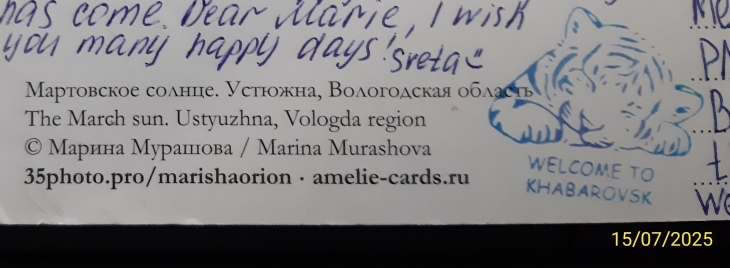 has come. Dear Marie, I wish
you many happy days! Sveta
Мартовское солнце. Устюжна, Вологодская область
The March sun. Ustyuzhna, Vologda region
© Марина Мурашова / Marina Murashova
35photo.pro/marishaorion · amelie-cards.ru
WELCOME TO
KHABAROVSK
15/07/2025